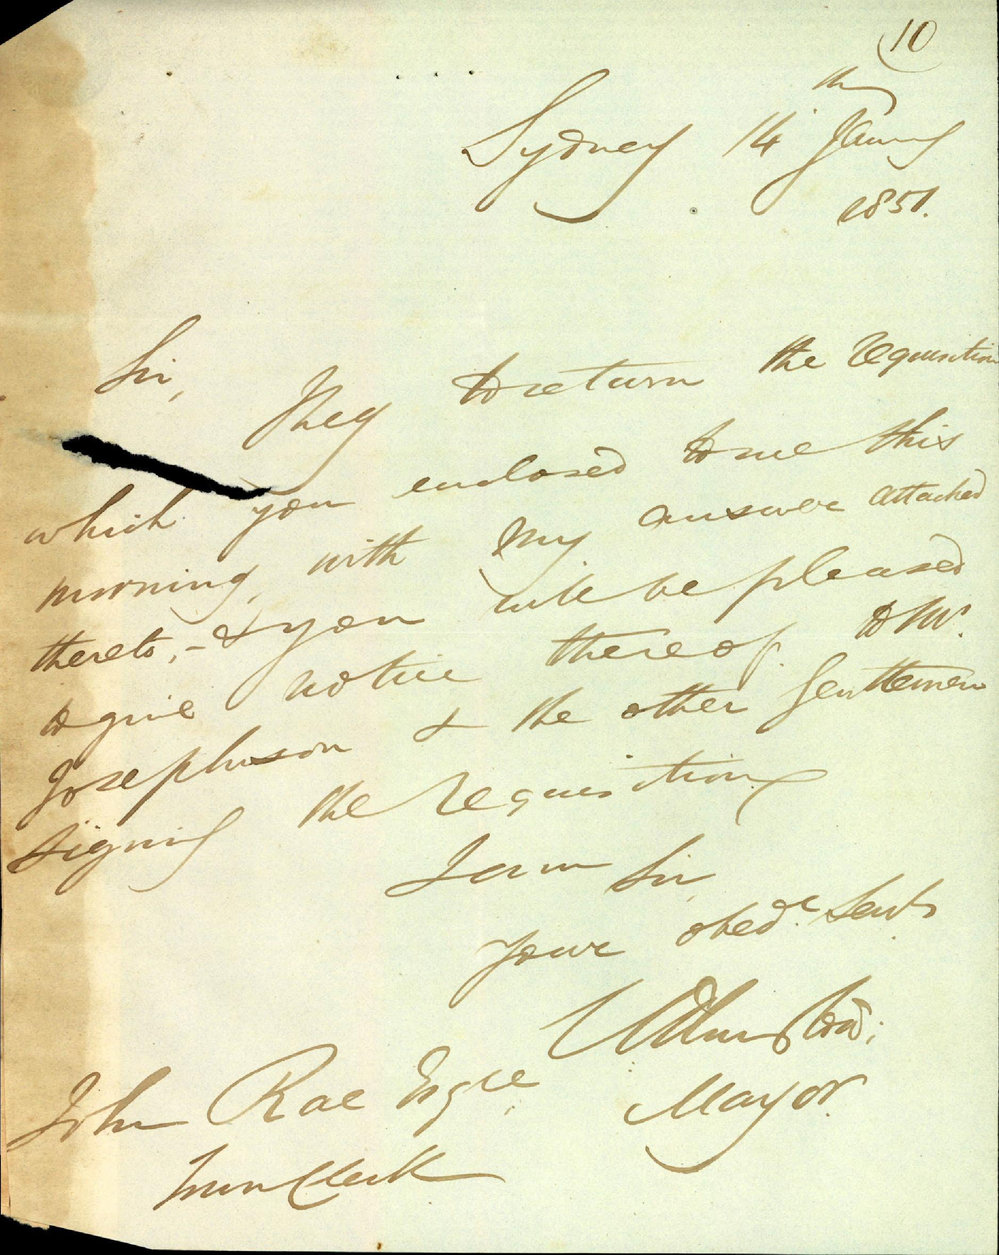 10
Sydney 14th Jany
1851.
Sir,
I beg to return the requisition
which you enclosed to me this
morning, with my answer attached
thereto, - & you will be pleased
to give notice thereof to Mr.
Josephson & the other Gentlemen
signing the requisition
I am Sir
your obedt Servt
Mayor.
John Rae Esqre
Town Clerk